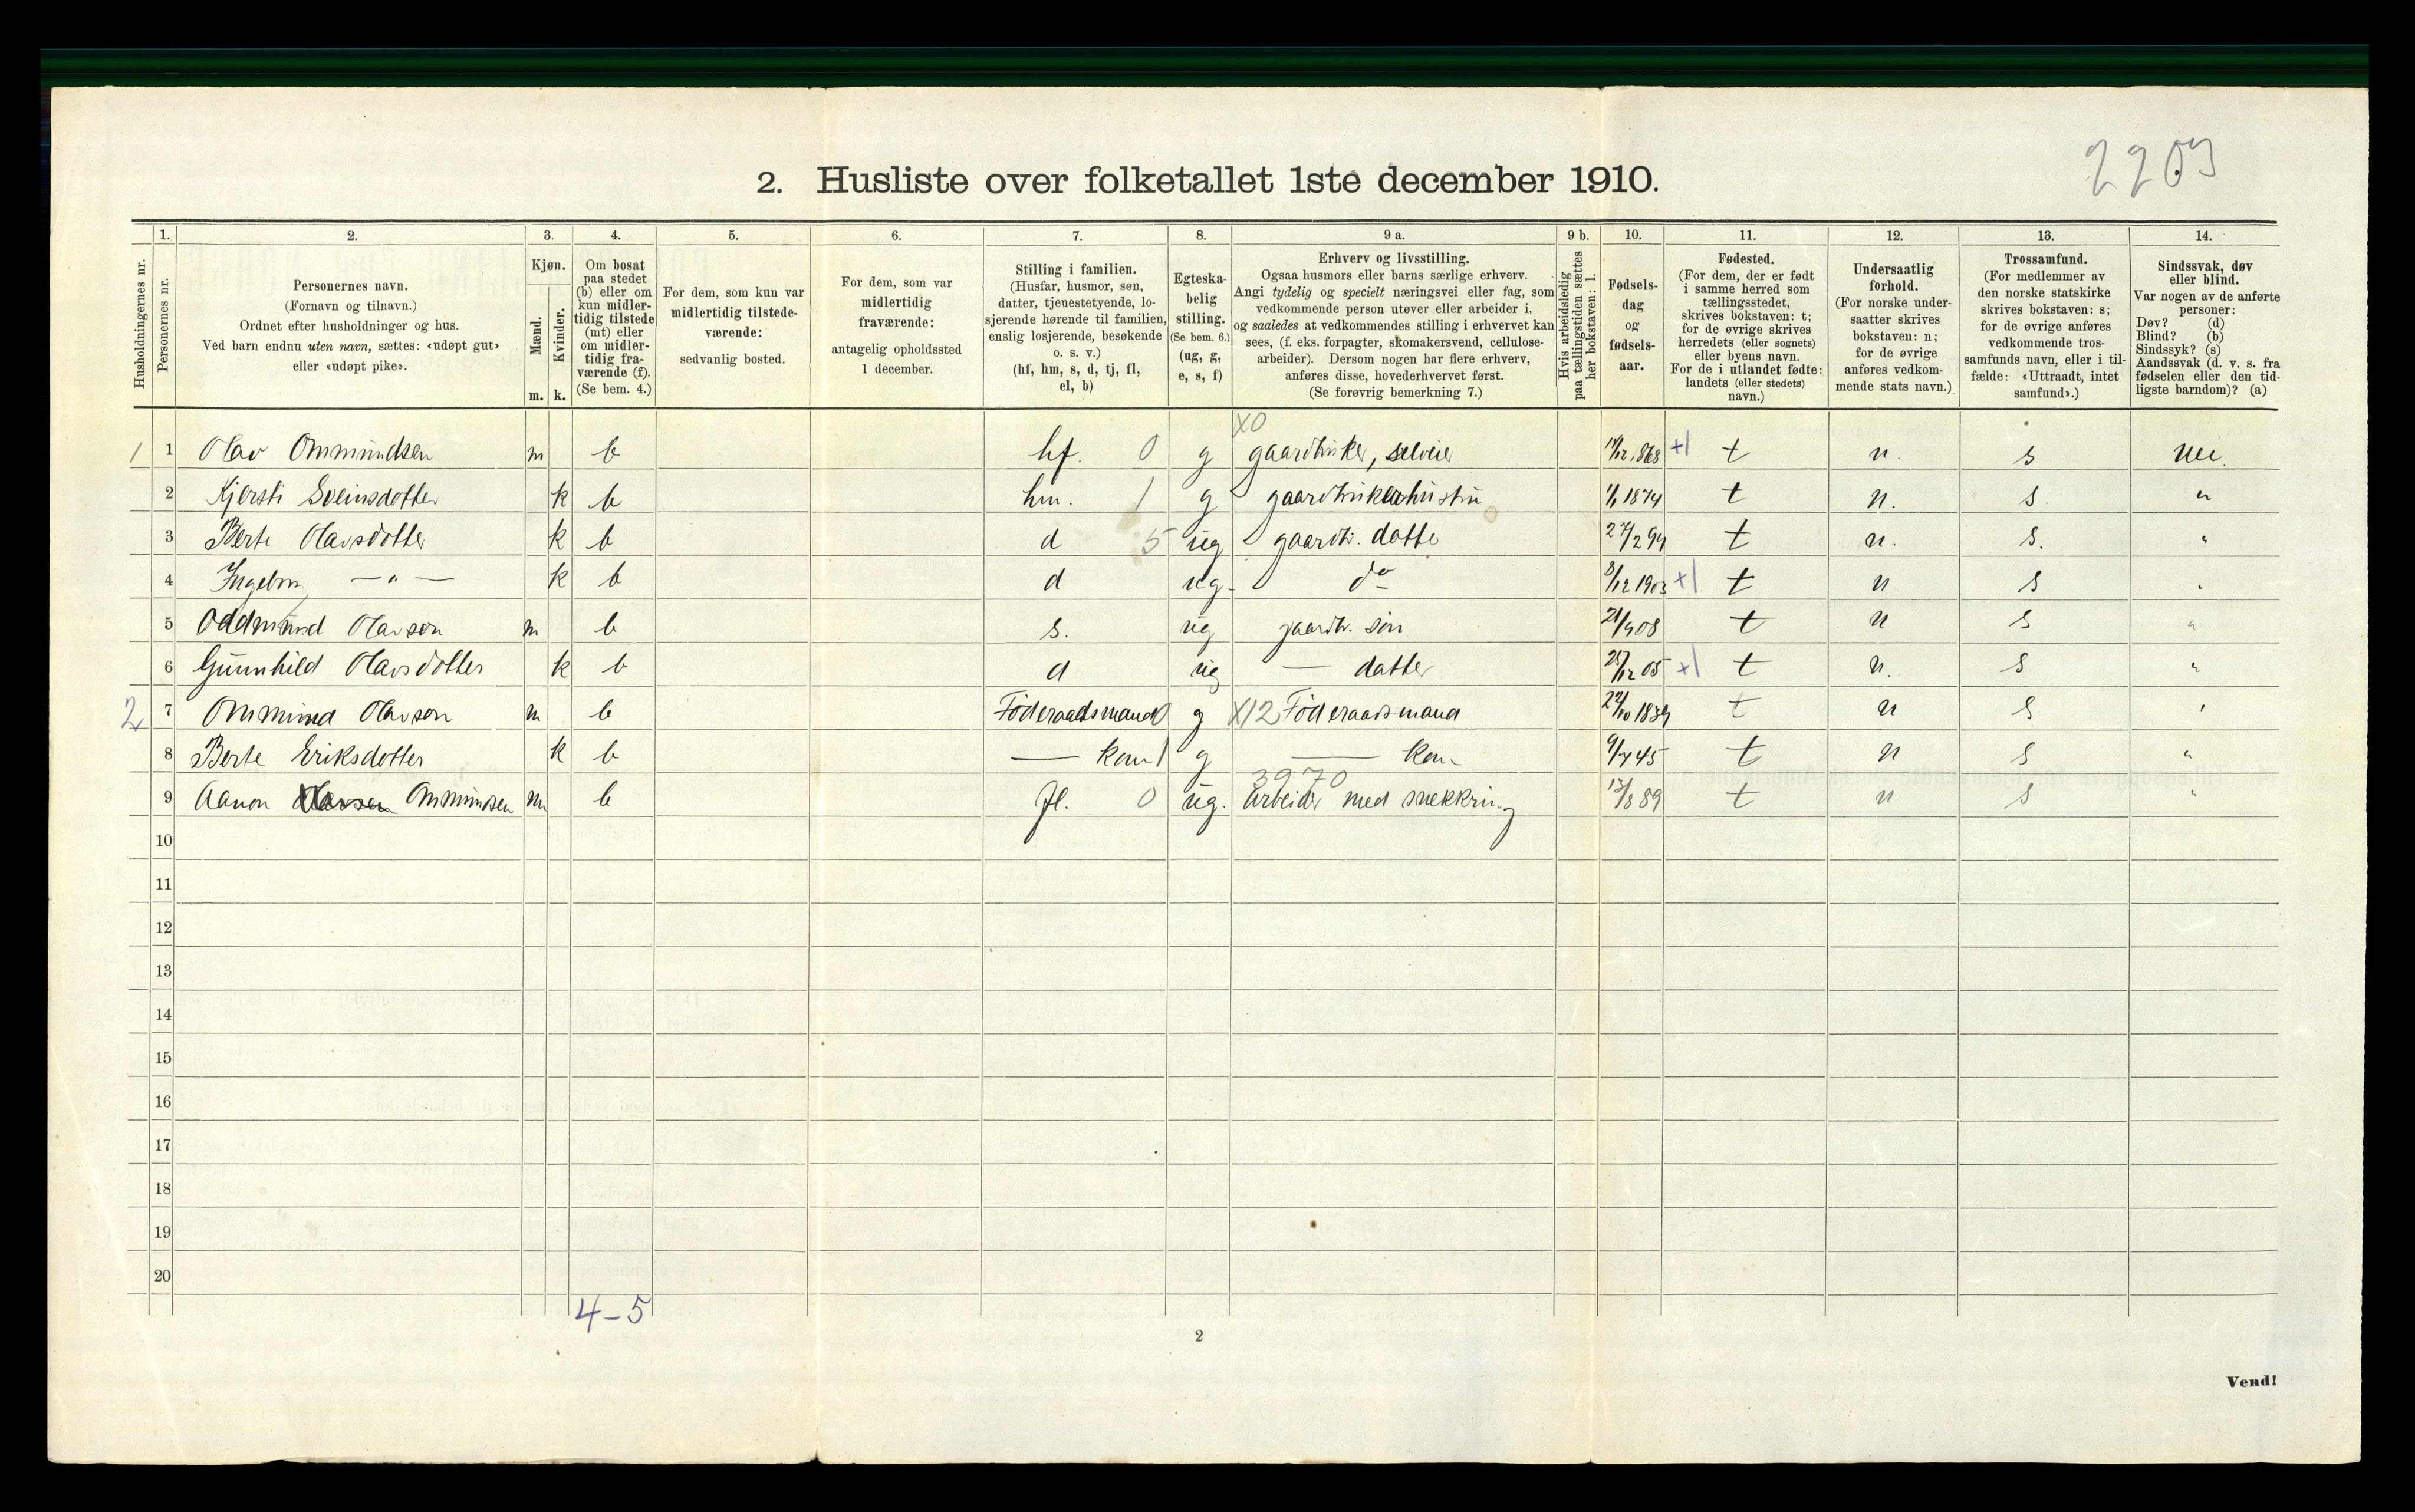 2209
2. Husliste over folketallet 1ste december 1910.
Husholdningernes nr.
1. Personernes nr.
2. Personernes navn.
(Fornavn og tilnavn.)
Ordnet efter husholdninger og hus.
Ved barn endnu uten navn, sættes: «udøpt gut»
eller «udøpt pike».
3. Kjøn.
Mænd. m.
Kvinder. k.
4. Om bosat
paa stedet
(b) eller om
kun midler-
tidig tilstede
(mt) eller
om midler-
tidig fra-
værende (f).
(Se bem. 4.)
5. For dem, som kun var
midlertidig tilstede-
værende:
sedvanlig bosted.
6. For dem, som var
midlertidig
fraværende:
antagelig opholdssted
1 december.
7. Stilling i familien.
(Husfar, husmor, søn,
datter, tjenestetyende, lo-
sjerende hørende til familien,
enslig losjerende, besøkende
o. s. v.)
(hf, hm, s, d, tj, fl,
el, b)
8. Egteska-
belig
stilling.
(Se bem. 6.)
(ug, g,
e, s, f)
9 a. Erhverv og livsstilling.
Ogsaa husmors eller barns særlige erhverv.
Angi tydelig og specielt næringsvei eller fag, som
vedkommende person utøver eller arbeider i,
og saaledes at vedkommendes stilling i erhvervet kan
sees, (f. eks. forpagter, skomakersvend, cellulose-
arbeider). Dersom nogen har flere erhverv,
anføres disse, hovederhvervet først.
(Se forøvrig bemerkning 7.)
9 b. Hvis arbeidsledig
paa tællingstiden sættes
her bokstaven: l.
10. Fødsels-
dag
og
fødsels-
aar.
11. Fødested.
(For dem, der er født
i samme herred som
tællingsstedet,
skrives bokstaven: t;
for de øvrige skrives
herredets (eller sognets)
eller byens navn.
For de i utlandet fødte:
landets (eller stedets)
navn.)
12. Undersaatlig
forhold.
(For norske under-
saatter skrives
bokstaven: n;
for de øvrige
anføres vedkom-
mende stats navn.)
13. Trossamfund.
(For medlemmer av
den norske statskirke
skrives bokstaven: s;
for de øvrige anføres
vedkommende tros-
samfunds navn, eller i til-
fælde: «Uttraadt, intet
samfund».)
14. Sindssvak, døv
eller blind.
Var nogen av de anførte
personer:
Døv? (d)
Blind? (b)
Sindssyk? (s)
Aandssvak (d. v. s. fra
fødselen eller den tid-
ligste barndom)? (a)
X0
1 1 Olav Ommundsen m b hf. 0 g gaardbruker, selveier 868 +1 t n. s nei.
2 Kjersti Sveinsdotter k b hm. 1 g gaardbrukerhustru 1/1 1874 t n. s. "
3 Berte Olavsdotter k b d 5 ug gaardb. datte 27/2 99 t n. s. "
4 Ingebor — " — k b d ug. do 8/12 1903 +1 t n s "
5 Oddmund Olavson m b s. ug gaardb. søn 21/9 08 t n s "
6 Gunnhild Olavsdotter k b d ug — datter 25/12 05 +1 t n. s "
2 7 Ommund Olavson m b Föderaadsmand 0 g X12 Föderaadsmand 22/10 1839 t n s "
8 Berte Eriksdotter k b — kone 1 g — kone 9/7 45 t n s "
3970
9 Aanon Ommundsen m b fl. 0 ug. arbeider med snekkring 13/8 89 t n s "
10
11
12
13
14
15
16
17
18
19
20
4-5
2
Vend!